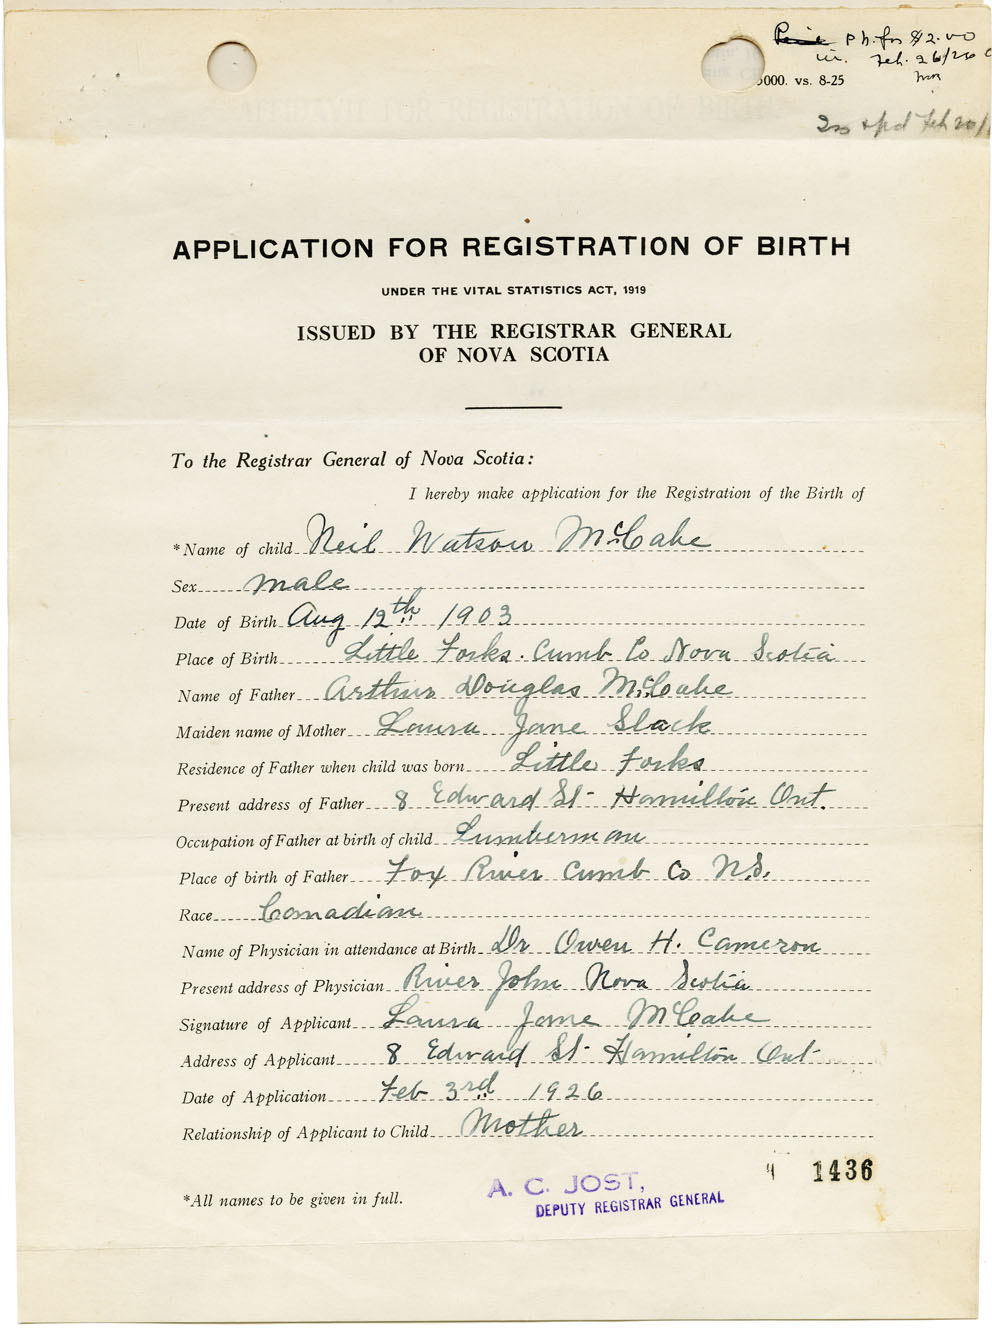 Ph. for $2.00
in. Feb. 26/26
5000. vs. 8-25
APPLICATION FOR REGISTRATION OF BIRTH
UNDER THE VITAL STATISTICS ACT, 1919
ISSUED BY THE REGISTRAR GENERAL
OF NOVA SCOTIA
To the Registrar General of Nova Scotia:
I hereby make application for the Registration of the Birth of
*Name of child Neil Watson McCabe
Sex male
Date of Birth Aug 12th 1903
Place of Birth Little Forks. Cumb Co Nova Scotia
Name of Father Arthur Douglas McCabe
Maiden name of Mother Laura Jane Slack
Residence of Father when child was born Little Forks
Present address of Father 8 Edward St- Hamilton Ont.
Occupation of Father at birth of child Lumberman
Place of birth of Father Fox River Cumb Co N.S.
Race Canadian
Name of Physician in attendance at Birth Dr Owen H. Cameron
Present address of Physician River John Nova Scotia
Signature of Applicant Laura Jane McCabe
Address of Applicant 8 Edward St- Hamilton Ont-
Date of Application Feb 3rd 1926
Relationship of Applicant to Child Mother
1436
*All names to be given in full.
A. C. JOST,
DEPUTY REGISTRAR GENERAL